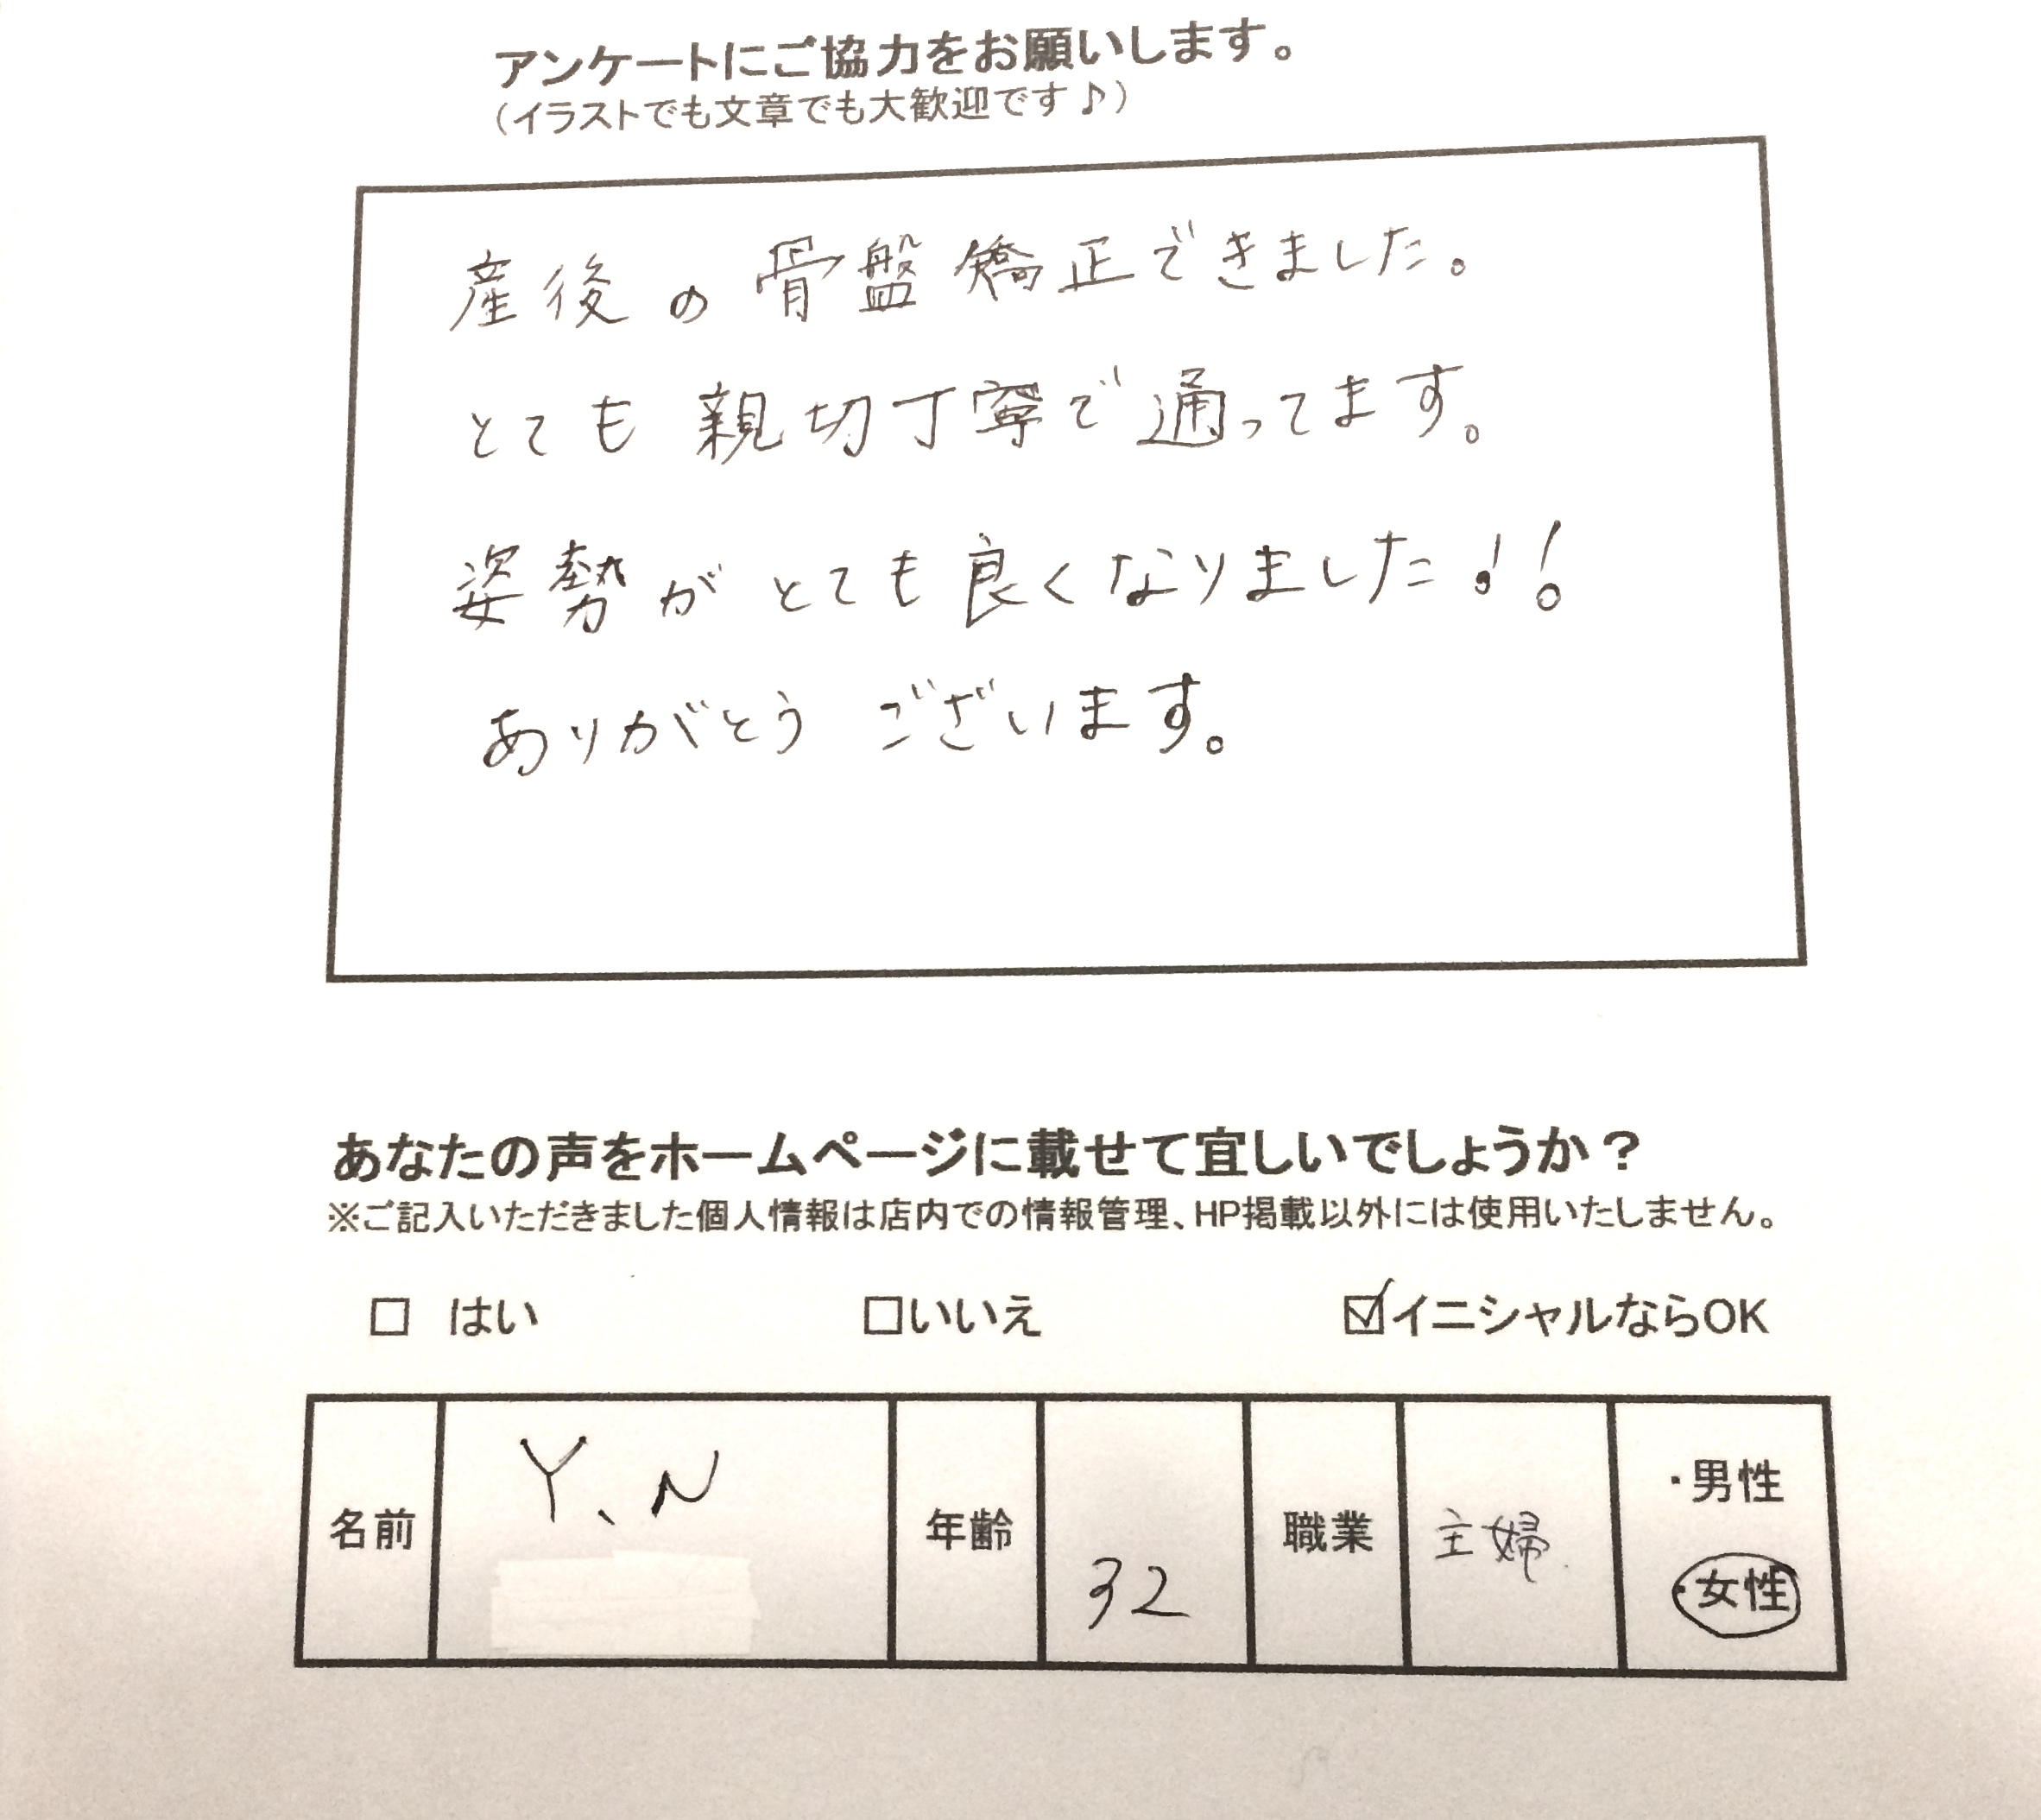 アンケートにご協力をお願いします。
(イラストでも文章でも大歓迎です♪)
産後の骨盤矯正できました。
とても親切丁寧で通ってます。
姿勢がとても良くなりました!!
ありがとうございます。
あなたの声をホームページに載せて宜しいでしょうか?
※ご記入いただきました個人情報は店内での情報管理、HP掲載以外には使用いたしません。
□ はい □いいえ ☑イニシャルならOK
名前 Y、N 年齢 32 職業 主婦 ・男性
・女性